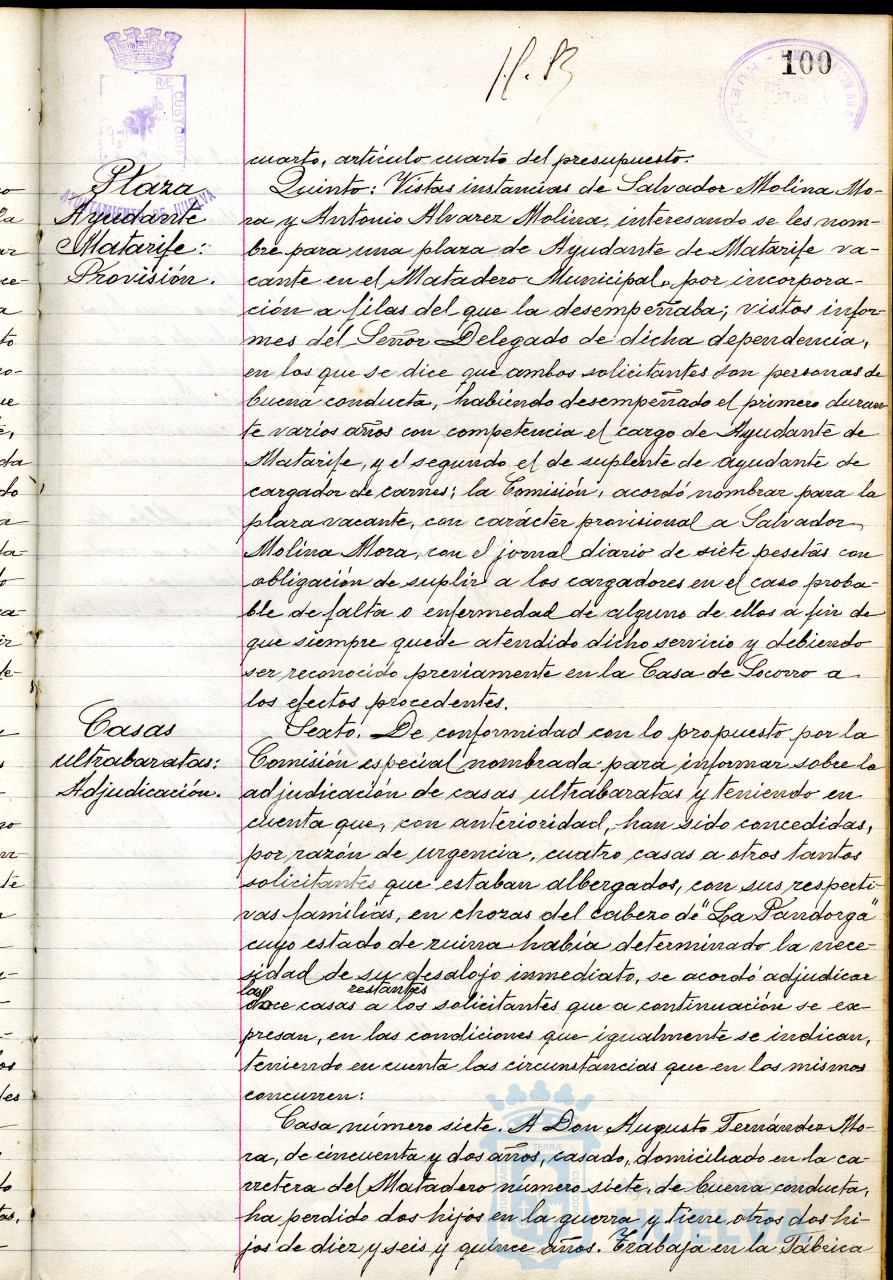 100
cuarto, artículo cuarto del presupuesto.
Plaza
Ayudante
Matarife:
Provisión.
Quinto: Vistas instancias de Salvador Molina Mo-
ra y Antonio Alvarez Molina, interesando se les nom-
bre para una plaza de Ayudante de Matarife va-
cante en el Matadero Municipal, por incorpora-
ción a filas del que la desempeñaba; vistos infor-
mes del Señor Delegado de dicha dependencia,
en los que se dice que ambos solicitantes son personas de
buena conducta, habiendo desempeñado el primero duran-
te varios años con competencia el cargo de Ayudante de
Matarife, y el segundo el de suplente de ayudante de
cargador de carnes; la Comisión, acordó nombrar para la
plaza vacante, con carácter provisional a Salvador
Molina Mora, con el jornal diario de siete pesetas con
obligación de suplir a los cargadores en el caso proba-
ble de falta o enfermedad de alguno de ellos a fin de
que siempre quede atendido dicho servicio y debiendo
ser reconocido previamente en la Casa de Socorro a
los efectos procedentes.
Casas
ultrabaratas:
Adjudicación.
Sexto. De conformidad con lo propuesto por la
Comisión especial nombrada para informar sobre la
adjudicación de casas ultrabaratas y teniendo en
cuenta que, con anterioridad, han sido concedidas,
por razón de urgencia, cuatro casas a otros tantos
solicitantes que estaban albergados, con sus respecti-
vas familias, en chozas del cabezo de "La Pandorga"
cuyo estado de ruina había determinado la nece-
sidad de su desalojo inmediato, se acordó adjudicar
las restantes
doce casas a los solicitantes que a continuación se ex-
presan, en las condiciones que igualmente se indican,
teniendo en cuenta las circunstancias que en los mismos
concurren:
Casa número siete. A Don Augusto Fernández Mo-
ra, de cincuenta y dos años, casado, domiciliado en la ca-
rretera del Matadero número siete, de buena conducta,
ha perdido dos hijos en la guerra y tiene otros dos hi-
jos de diez y seis y quince años. Trabaja en la Fábrica
AYUNTAMIENTO DE HUELVA
HUELVA